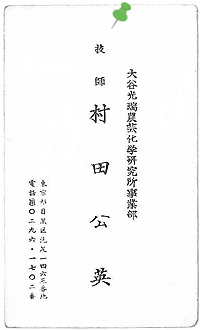 大谷光瑞農芸化学研究所事業部
技師
村田公英
東京都目黒区洗足一四六三番地
電話㊺〇二九六・一七〇二番